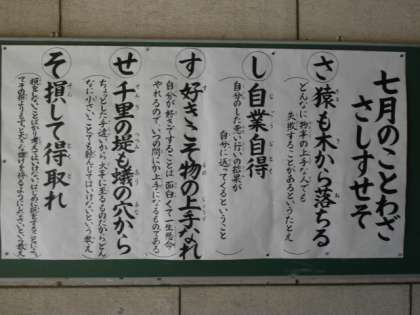 七月のことわざ
さしすせそ
さ 猿も木から落ちる
（どんなに物事の上手な人でも
失敗することがあるというたとえ）
し 自業自得
（自分のした悪い行いの結果が
自分に返ってくるということ）
す 好きこそ物の上手なれ
（自分が好きですることは面白くて一生懸命
やれるので、いつの間にか上手になるものである）
せ 千里の堤も蟻の穴から
（ちょっとした手違いから大事に至るものだからどん
なに小さいことでも軽んじてはいけないという教え）
そ 損して得取れ